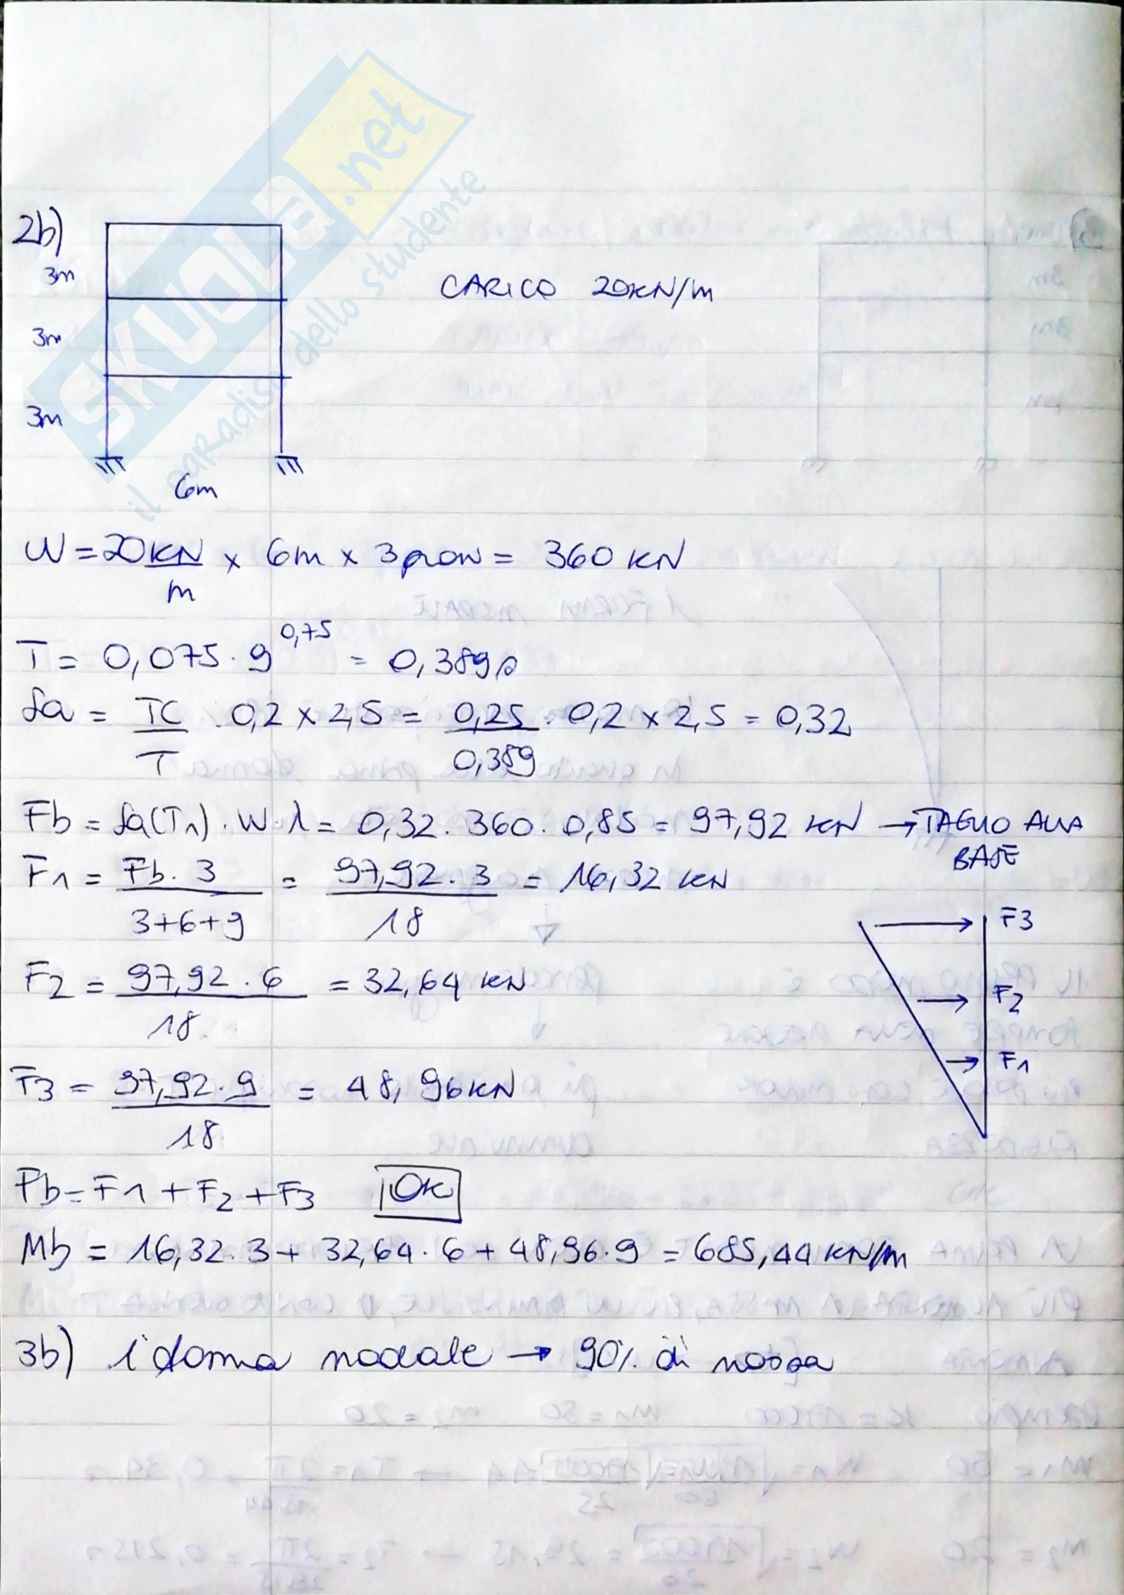 SKUOLA.net
il paradiso dello studente
2b)
3m
CARICO 20KN/m
3m
3m
6m
W = 20 KN/m x 6m x 3 piani = 360 KN
T = 0,075 · 9^0,75 = 0,389 s
Sa = TC/T · 0,2 x 2,5 = 0,25/0,389 · 0,2 x 2,5 = 0,32
Fb = Sa(T1) · W · λ = 0,32 · 360 · 0,85 = 97,92 KN → TAGLIO ALLA BASE
F1 = Fb · 3/3+6+9 = 97,92 · 3/18 = 16,32 KN
F2 = 97,92 · 6/18 = 32,64 KN
F3 = 97,92 · 9/18 = 48,96 KN
F3
F2
F1
Fb = F1 + F2 + F3 OK
Mb = 16,32 · 3 + 32,64 · 6 + 48,96 · 9 = 685,44 KN/m
3b) 1° forma modale → 90% di massa